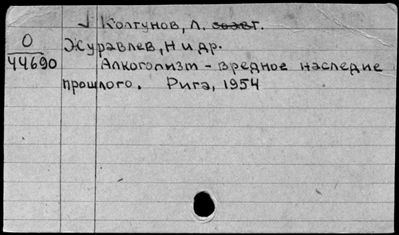 Колгунов, Л.
О
44690
Журавлев, Н и др.
Алкоголизм - вредное наследие
прошлого. Рига, 1954